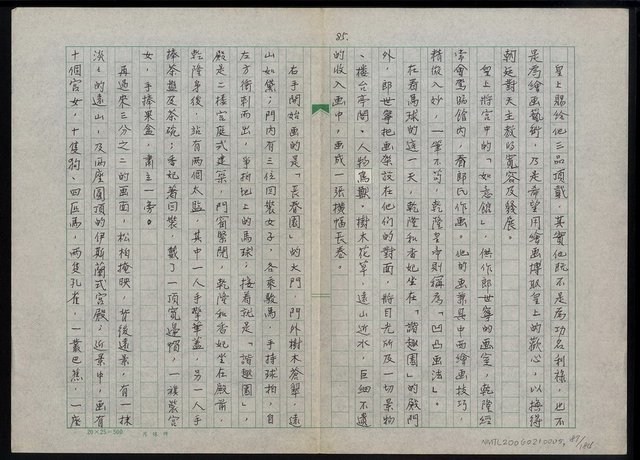 85.
皇上賜給他三品頂戴，其實他既不是為功名利祿，也不
是為繪畫藝術，乃是希望用繪畫博取皇上的歡心，以換得
朝廷對天主教的寬容及發展。
皇上將宮中的「如意館」，供作郎世寧的畫室，乾隆經
常會駕臨館內，看郎氏作畫。他的畫兼具中西繪畫技巧，
精微入妙，一筆不苟，乾隆皇帝則稱為「凹凸畫法」。
在看馬球的這一天，乾隆和香妃坐在「諧趣園」的殿門
外，郎世寧把畫架設在他們的對面，將目光所及一切景物
、樓台亭閣、人物鳥獸、樹木花草、遠山近水，巨細不遺
的收入畫中，畫成一張橫幅長卷。
右手開始畫的是「長春園」的大門，門外樹木蒼翠，遠
山如黛；門內有三位回裝女子，各乘駿馬，手持球拍，自
左方衝刺而出，爭折地上的馬球；接着就是「諧趣園」，
殿是二樓宮庭式建築，門窗緊閉，乾隆和香妃坐在殿前，
乾隆身後，站有兩個太監，其中一人手擎華蓋，另一人手
捧茶盤及茶碗；香妃著回裝，戴了一頂寬邊帽，一襟裝宮
女，手捧果盒，肅立一旁。
再過來三分之二的畫面，松柏掩映，背後遠景，有一抹
淡淡的遠山，及兩座圓頂的伊斯蘭式宮殿；近景中，畫有
十個宮女，十隻狗、四匹馬，兩隻孔雀，一叢芭蕉，一座
20×25=500
NMTL20060210005,